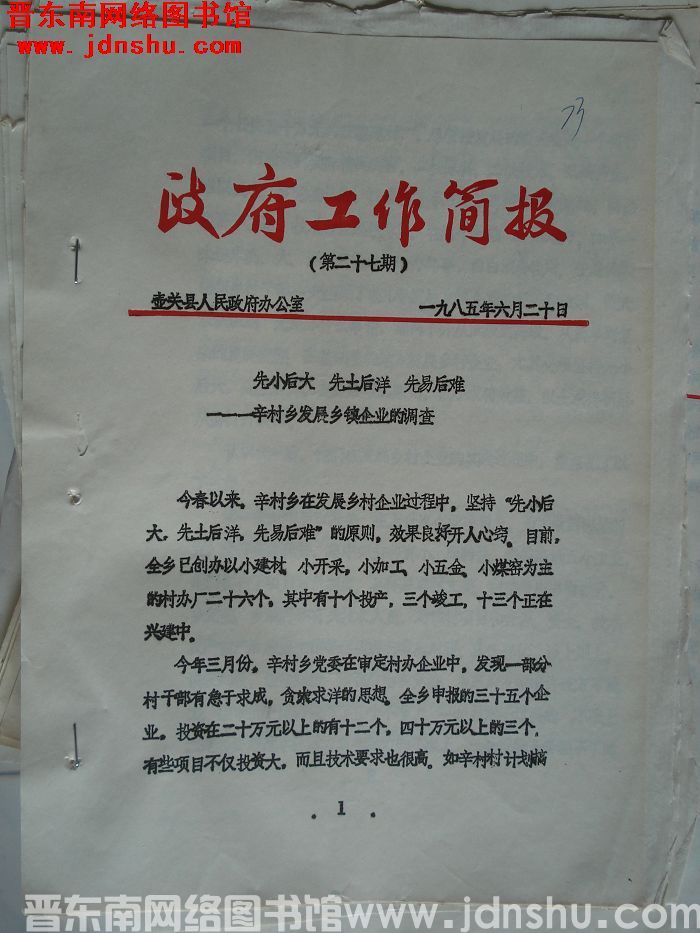 晋东南网络图书馆
www.jdnshu.com
73
政府工作简报
(第二十七期)
壶关县人民政府办公室 一九八五年六月二十日
先小后大 先土后洋 先易后难
———辛村乡发展乡镇企业的调查
今春以来，辛村乡在发展乡村企业过程中，坚持“先小后
大，先土后洋，先易后难”的原则，效果良好开人心窍。目前，
全乡已创办以小建材、小开采，小加工、小五金、小煤窑为主
的村办厂二十六个，其中有十个投产，三个竣工，十三个正在
兴建中。
今年三月份，辛村乡党委在审定村办企业中，发现一部分
村干部有急于求成，贪大求洋的思想。全乡申报的三十五个企
业，投资在二十万元以上的有十二个，四十万元以上的三个，
有些项目不仅投资大，而且技术要求也很高。如辛村村计划搞
. 1 .
晋东南网络图书馆 www.jdnshu.com